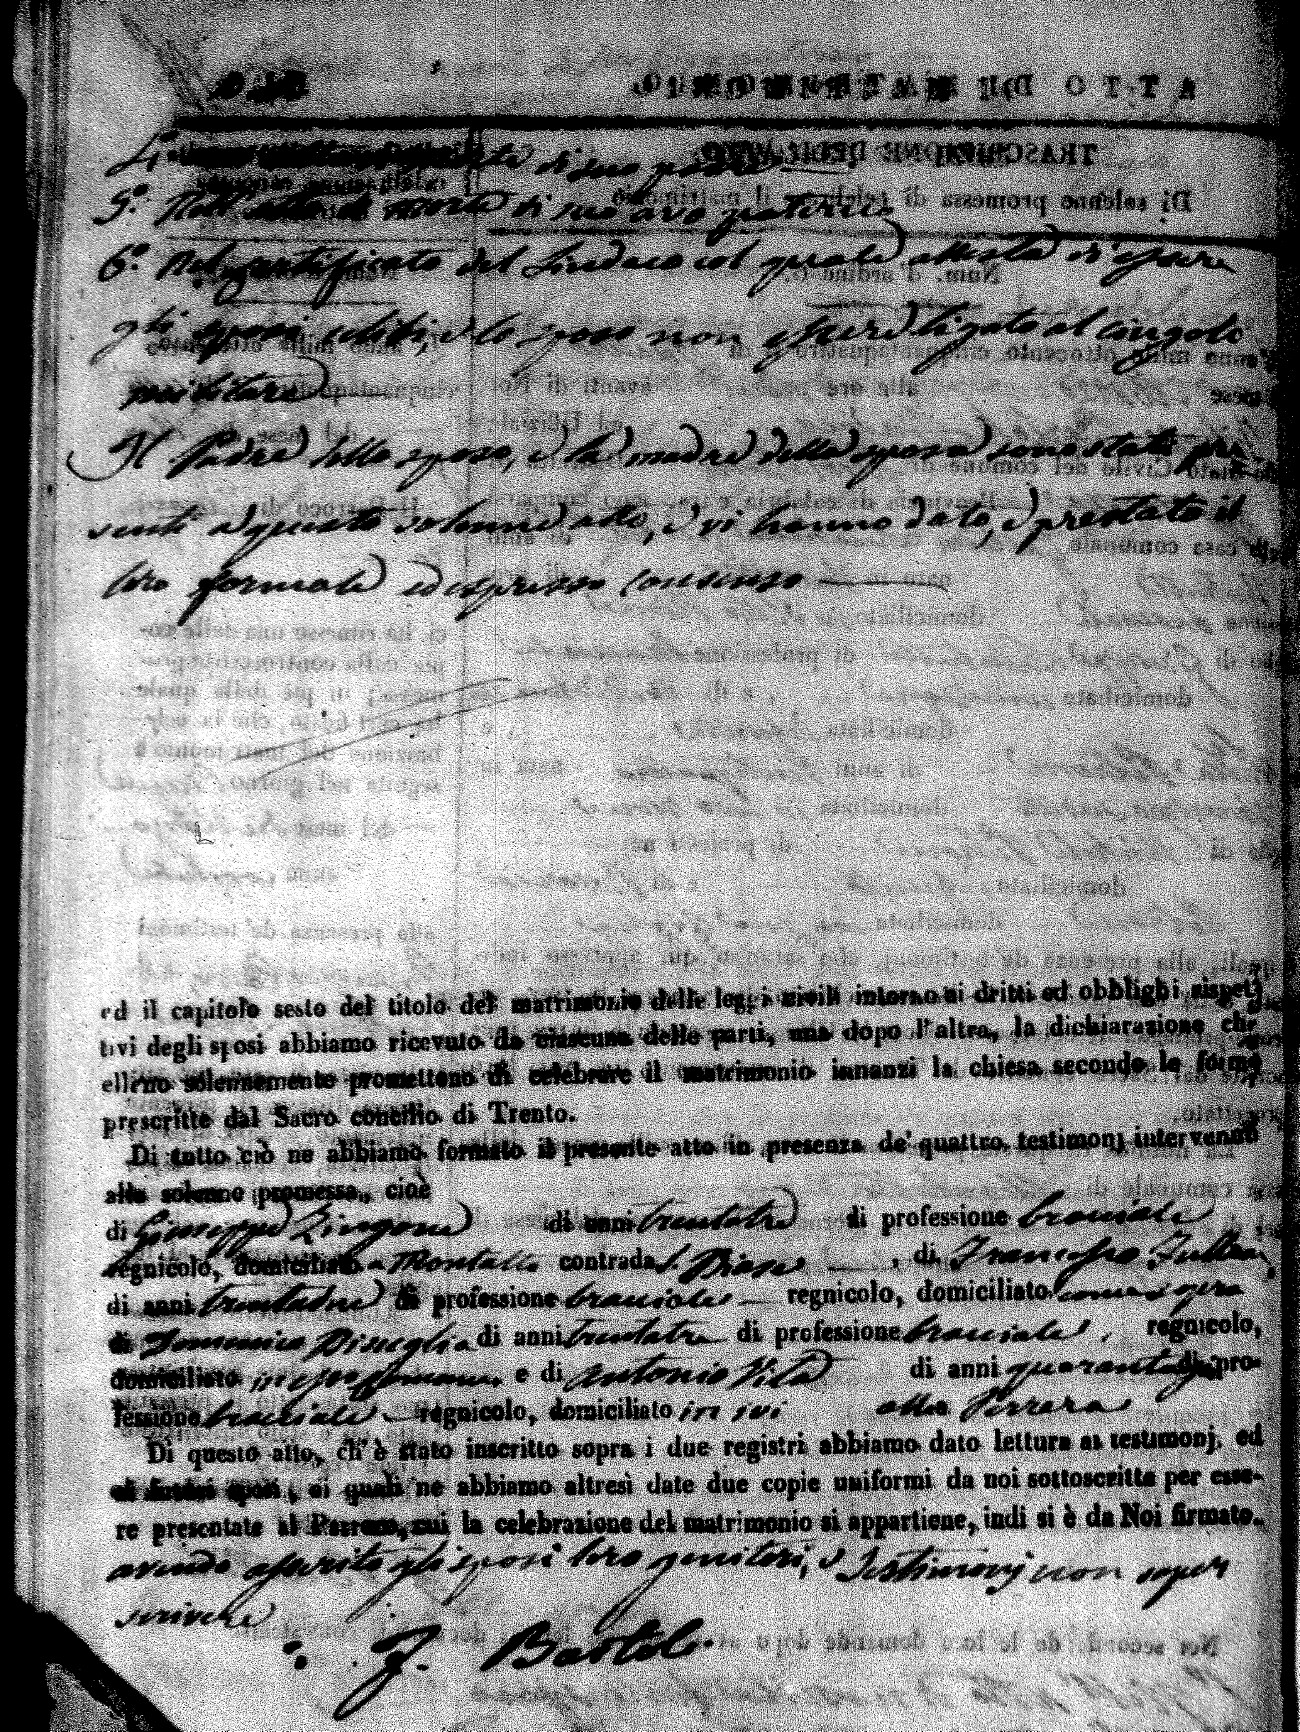 4.° di suo padre
5.° Nell'atto di morte di suo avo paterno
6.° Nel certificato del Sindaco col quale attesta di essere
gli sposi celibi, e lo sposo non essere ligato al cingolo
militare
Il Padre dello sposo, e la madre della sposa sono stati pre
senti a questo solenne atto, e vi hanno dato, e prestato il
loro formale ed espresso consenso
ed il capitolo sesto del titolo del matrimonio delle leggi civili intorno ai dritti ed obblighi rispet
tivi degli sposi abbiamo ricevuto da ciascuna delle parti, una dopo l'altra, la dichiarazione che
elleno solennemente promettono di celebrare il matrimonio innanzi la chiesa secondo le forme
prescritte dal Sacro concilio di Trento.
Di tutto ciò ne abbiamo formato il presente atto in presenza de' quattro testimonj intervenuti
alla solenne promessa, cioè
di Giuseppe Zingone di anni trentatre di professione bracciale
regnicolo, domiciliato a Montalto contrada S. Biase, di Francesco
di anni trentadue di professione bracciale regnicolo, domiciliato come sopra
di Domenico Bisceglia di anni trentatre di professione bracciale, regnicolo,
domiciliato in esso comune, e di Antonio Vita di anni quaranta di pro-
fessione bracciale regnicolo, domiciliato in ivi alla Ferrera
Di questo atto, ch'è stato inscritto sopra i due registri abbiamo dato lettura ai testimonj, ed
ai futuri sposi, ai quali ne abbiamo altresì date due copie uniformi da noi sottoscritte per esse-
re presentate al Parroco, cui la celebrazione del matrimonio si appartiene, indi si è da Noi firmato.
avendo asserito gli sposi loro genitori, e Testimonj non saper
scrivere
F. Bartoli